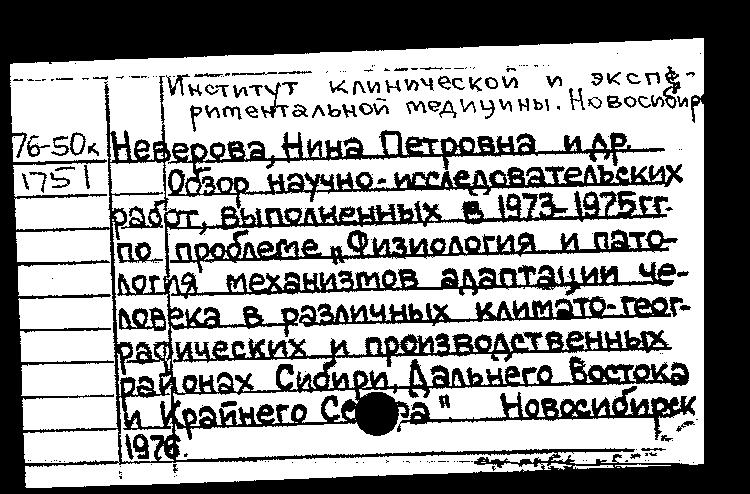 Институт клинической и экспе-
риментальной медицины. Новосибирск
76-50к Неверова, Нина Петровна и др.
1751 Обзор научно-исследовательских
работ, выполненных в 1973-1975гг.
по проблеме „Физиология и пато-
логия механизмов адаптации че-
ловека в различных климато-геог-
рафических и производственных
районах Сибири, Дальнего Востока
и Крайнего Севера" Новосибирск
1976.